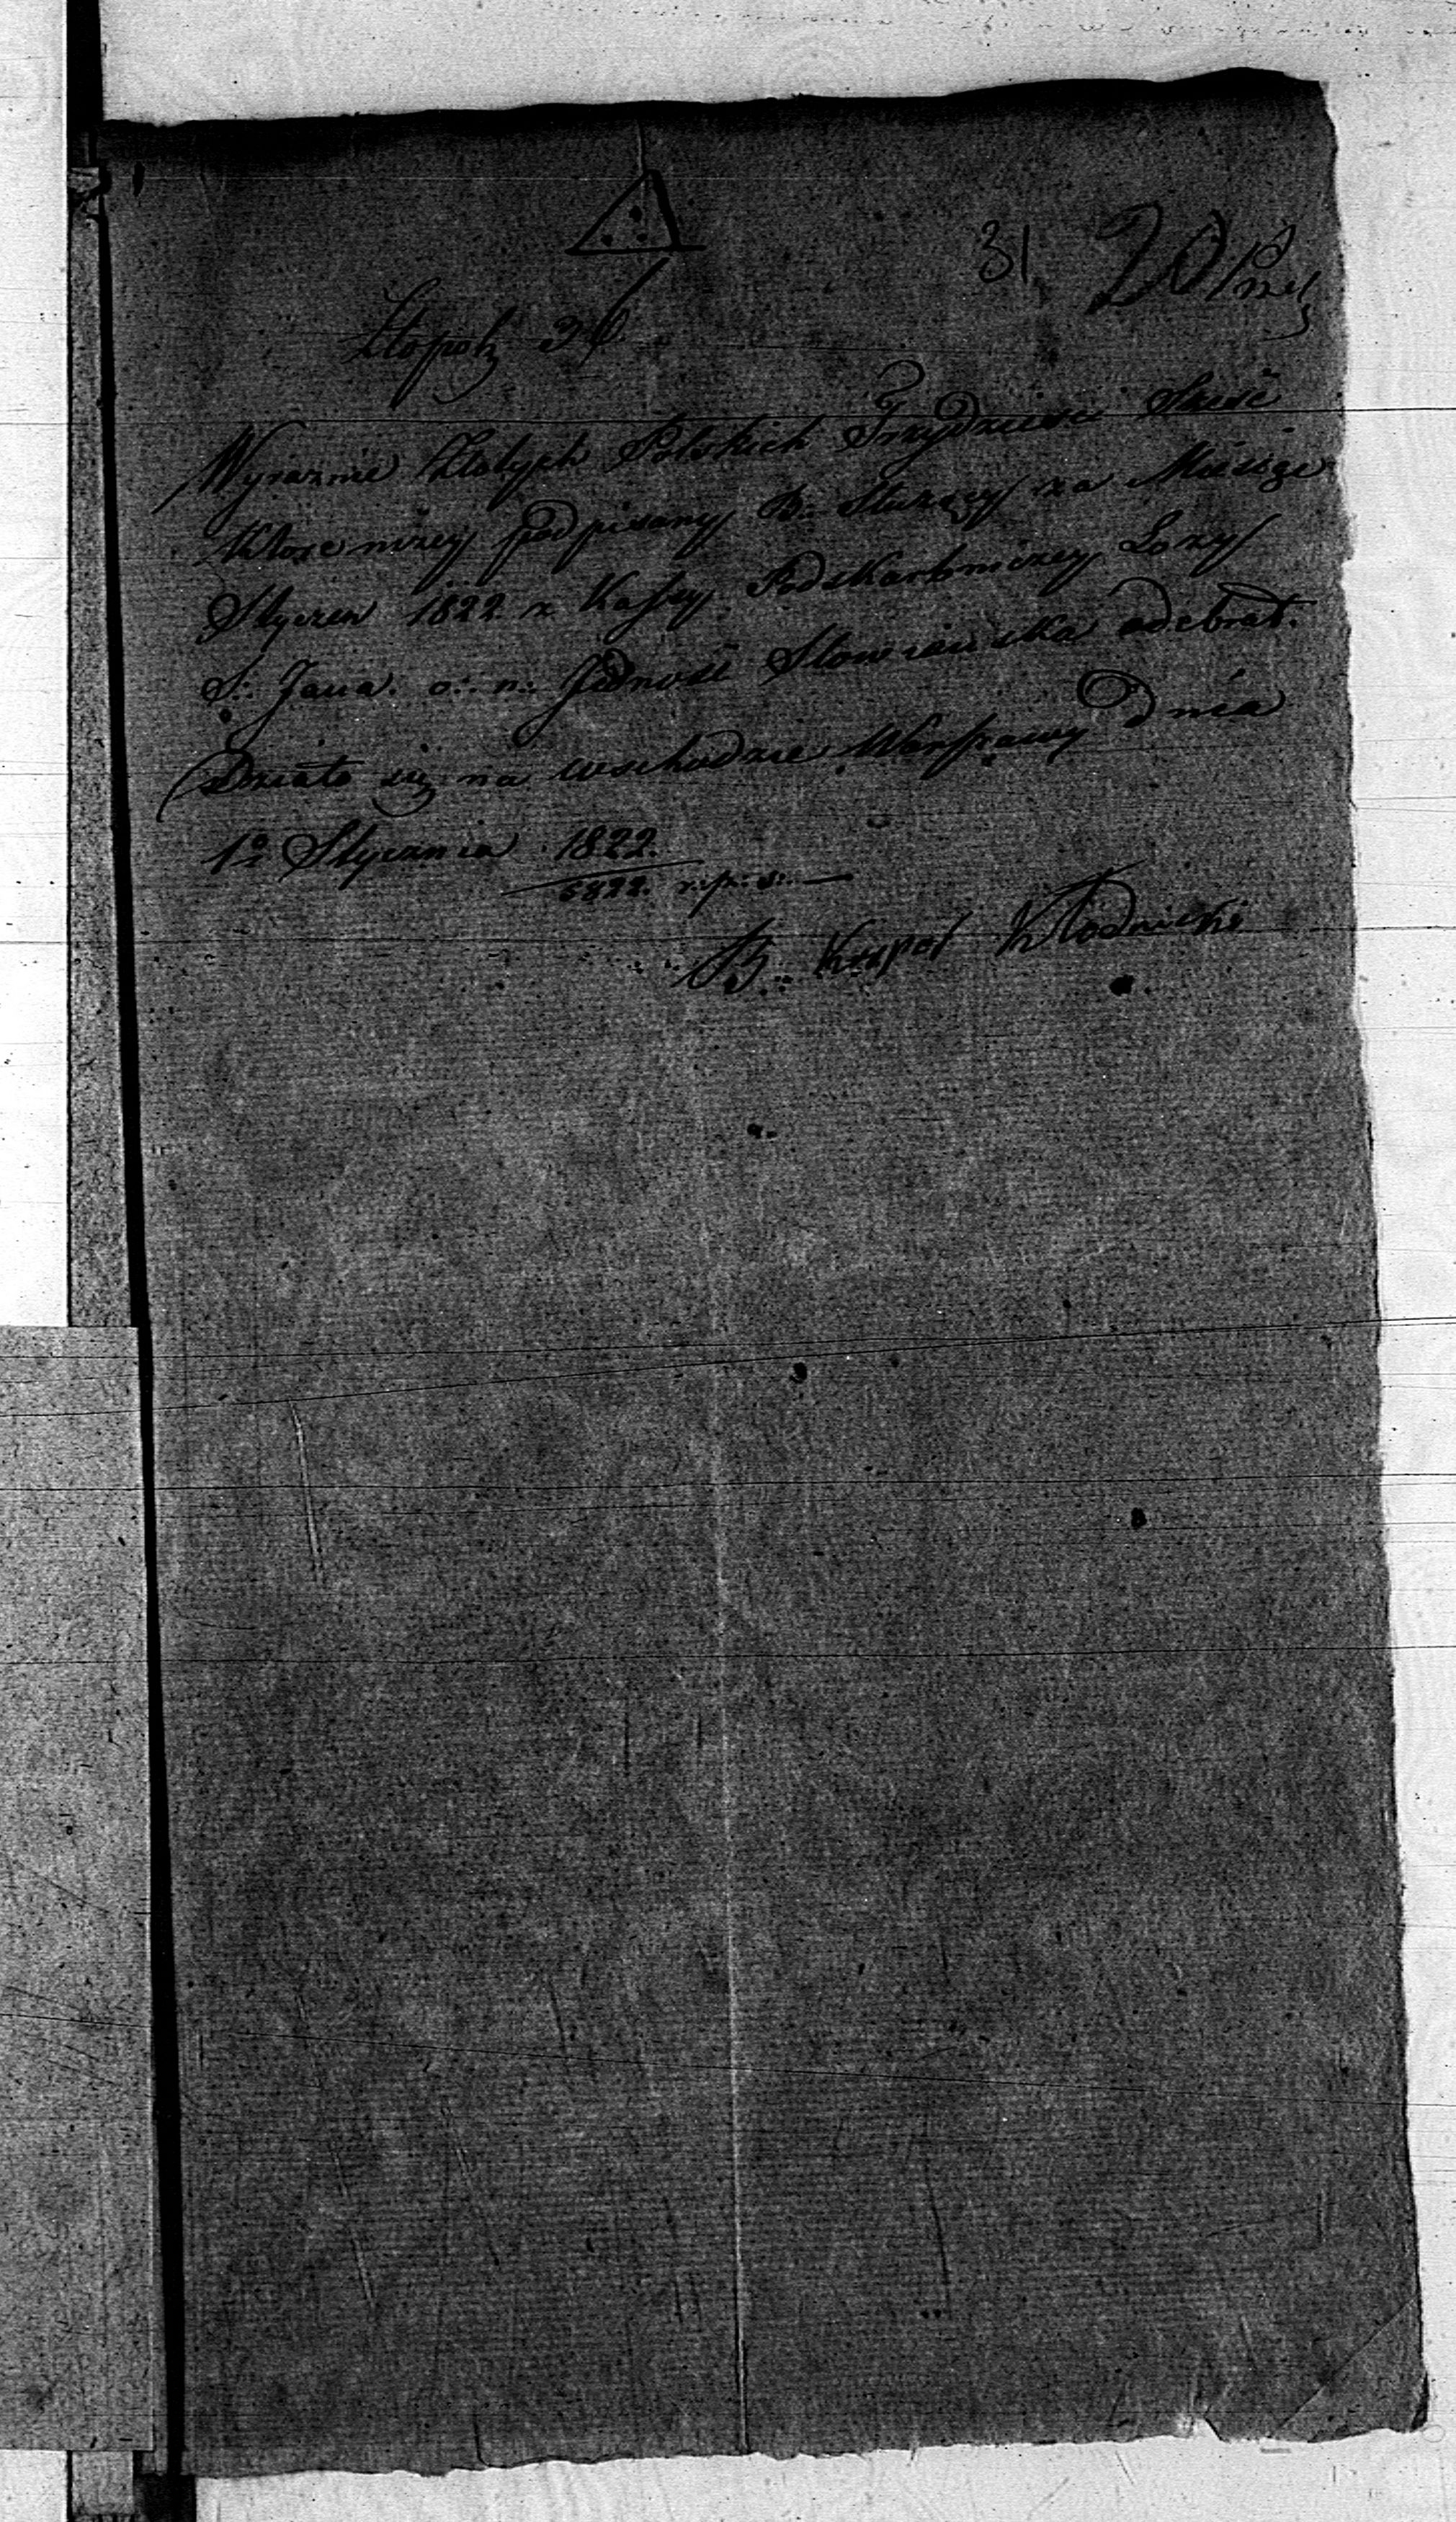 31 20
Złopol: 36
Wyraznie Złotych Polskich Trzydzieści Sześć
które niżey podpisany B: Służący za Miesiąc
Styczeń 1822 z Kassy Podskarbniczey Loży
S: Jana. o: n: Jedność Słowiańska odebrał.
Działo się na wschodzie Warszawy Dnia
1º Stycznia 1822.
5822. r: p: s:
B: Kłodnicki